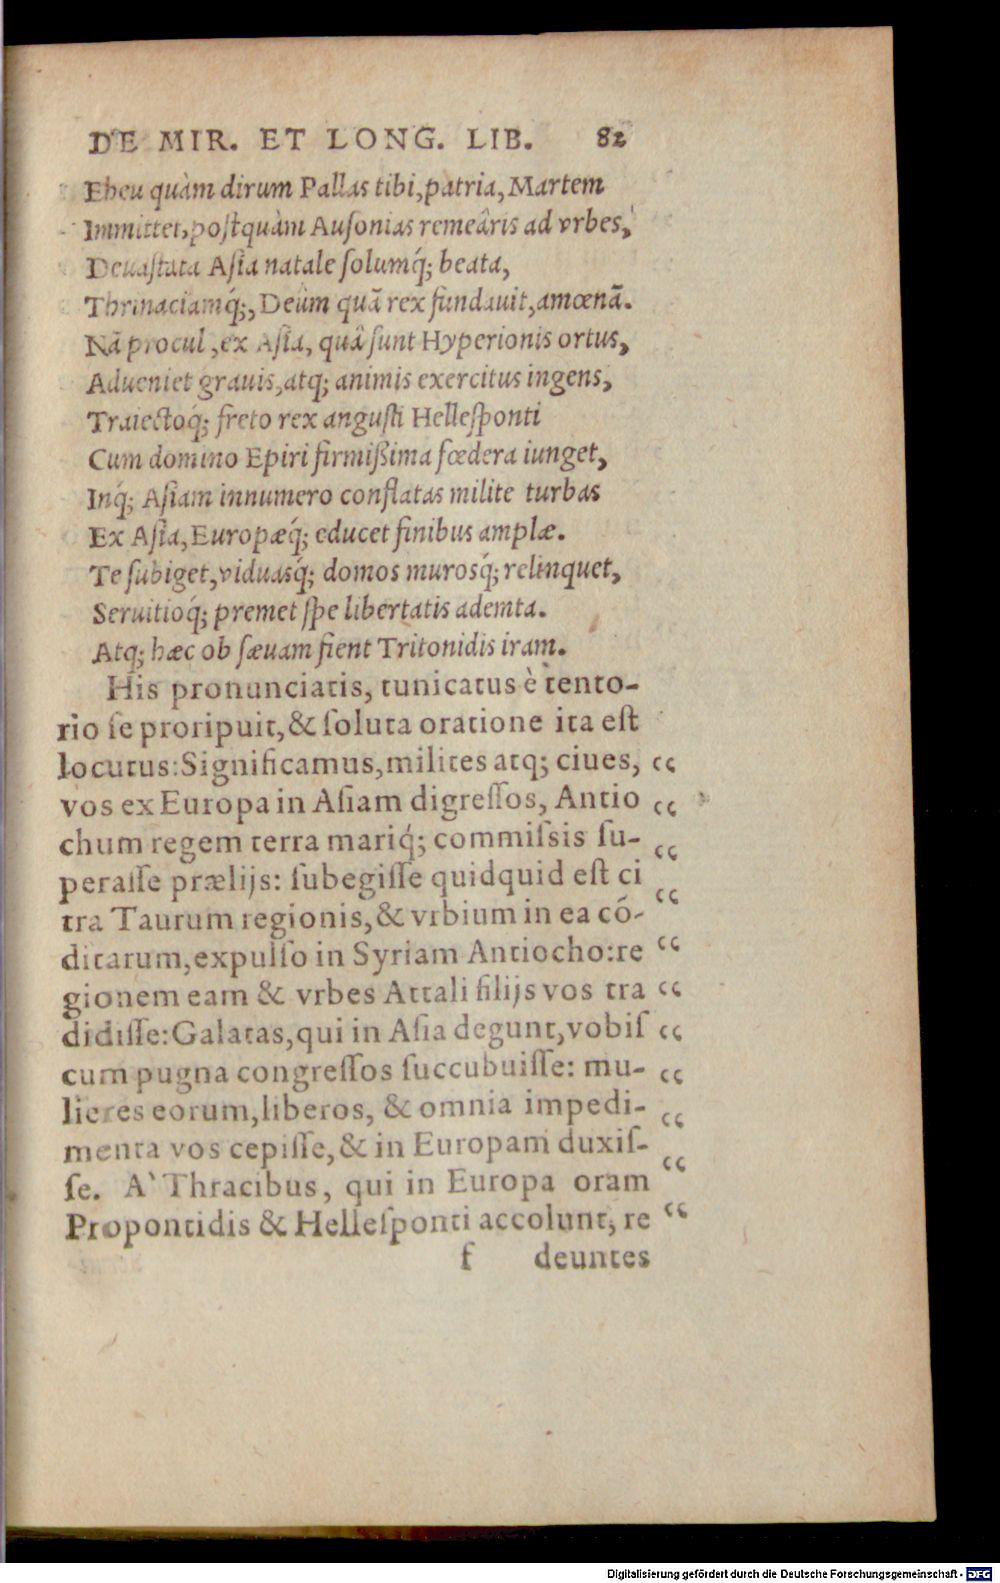 DE MIR. ET LONG. LIB. 82
Eheu quàm dirum Pallas tibi, patria, Martem
Immittet, postquàm Ausonias remeâris ad vrbes,
Deuastata Asia natale solumq́; beata,
Thrinaciamq́;, Deûm quã rex fundauit, amœnã.
Nã procul, ex Asia, quâ sunt Hyperionis ortus,
Adueniet grauis, atq; animis exercitus ingens,
Traiectoq́; freto rex angusti Hellesponti
Cum domino Epiri firmißima fœdera iunget,
Inq́; Asiam innumero conflatas milite turbas
Ex Asia, Europæq́; educet finibus amplæ.
Te subiget, viduasq́; domos murosq́; relinquet,
Seruitioq́; premet spe libertatis ademta.
Atq; hæc ob sæuam fient Tritonidis iram.
His pronunciatis, tunicatus è tento-
rio se proripuit, & soluta oratione ita est
locutus: Significamus, milites atq; ciues, “
vos ex Europa in Asiam digressos, Antio “
chum regem terra mariq́; commissis su- “
perasse prælijs: subegisse quidquid est ci “
tra Taurum regionis, & vrbium in ea cõ-
ditarum, expulso in Syriam Antiocho: re “
gionem eam & vrbes Attali filijs vos tra “
didisse: Galatas, qui in Asia degunt, vobis “
cum pugna congressos succubuisse: mu- “
lieres eorum, liberos, & omnia impedi- “
menta vos cepisse, & in Europam duxis- “
se. A` Thracibus, qui in Europa oram
Propontidis & Hellesponti accolunt, re “
f deuntes
Digitalisierung gefördert durch die Deutsche Forschungsgemeinschaft - DFG